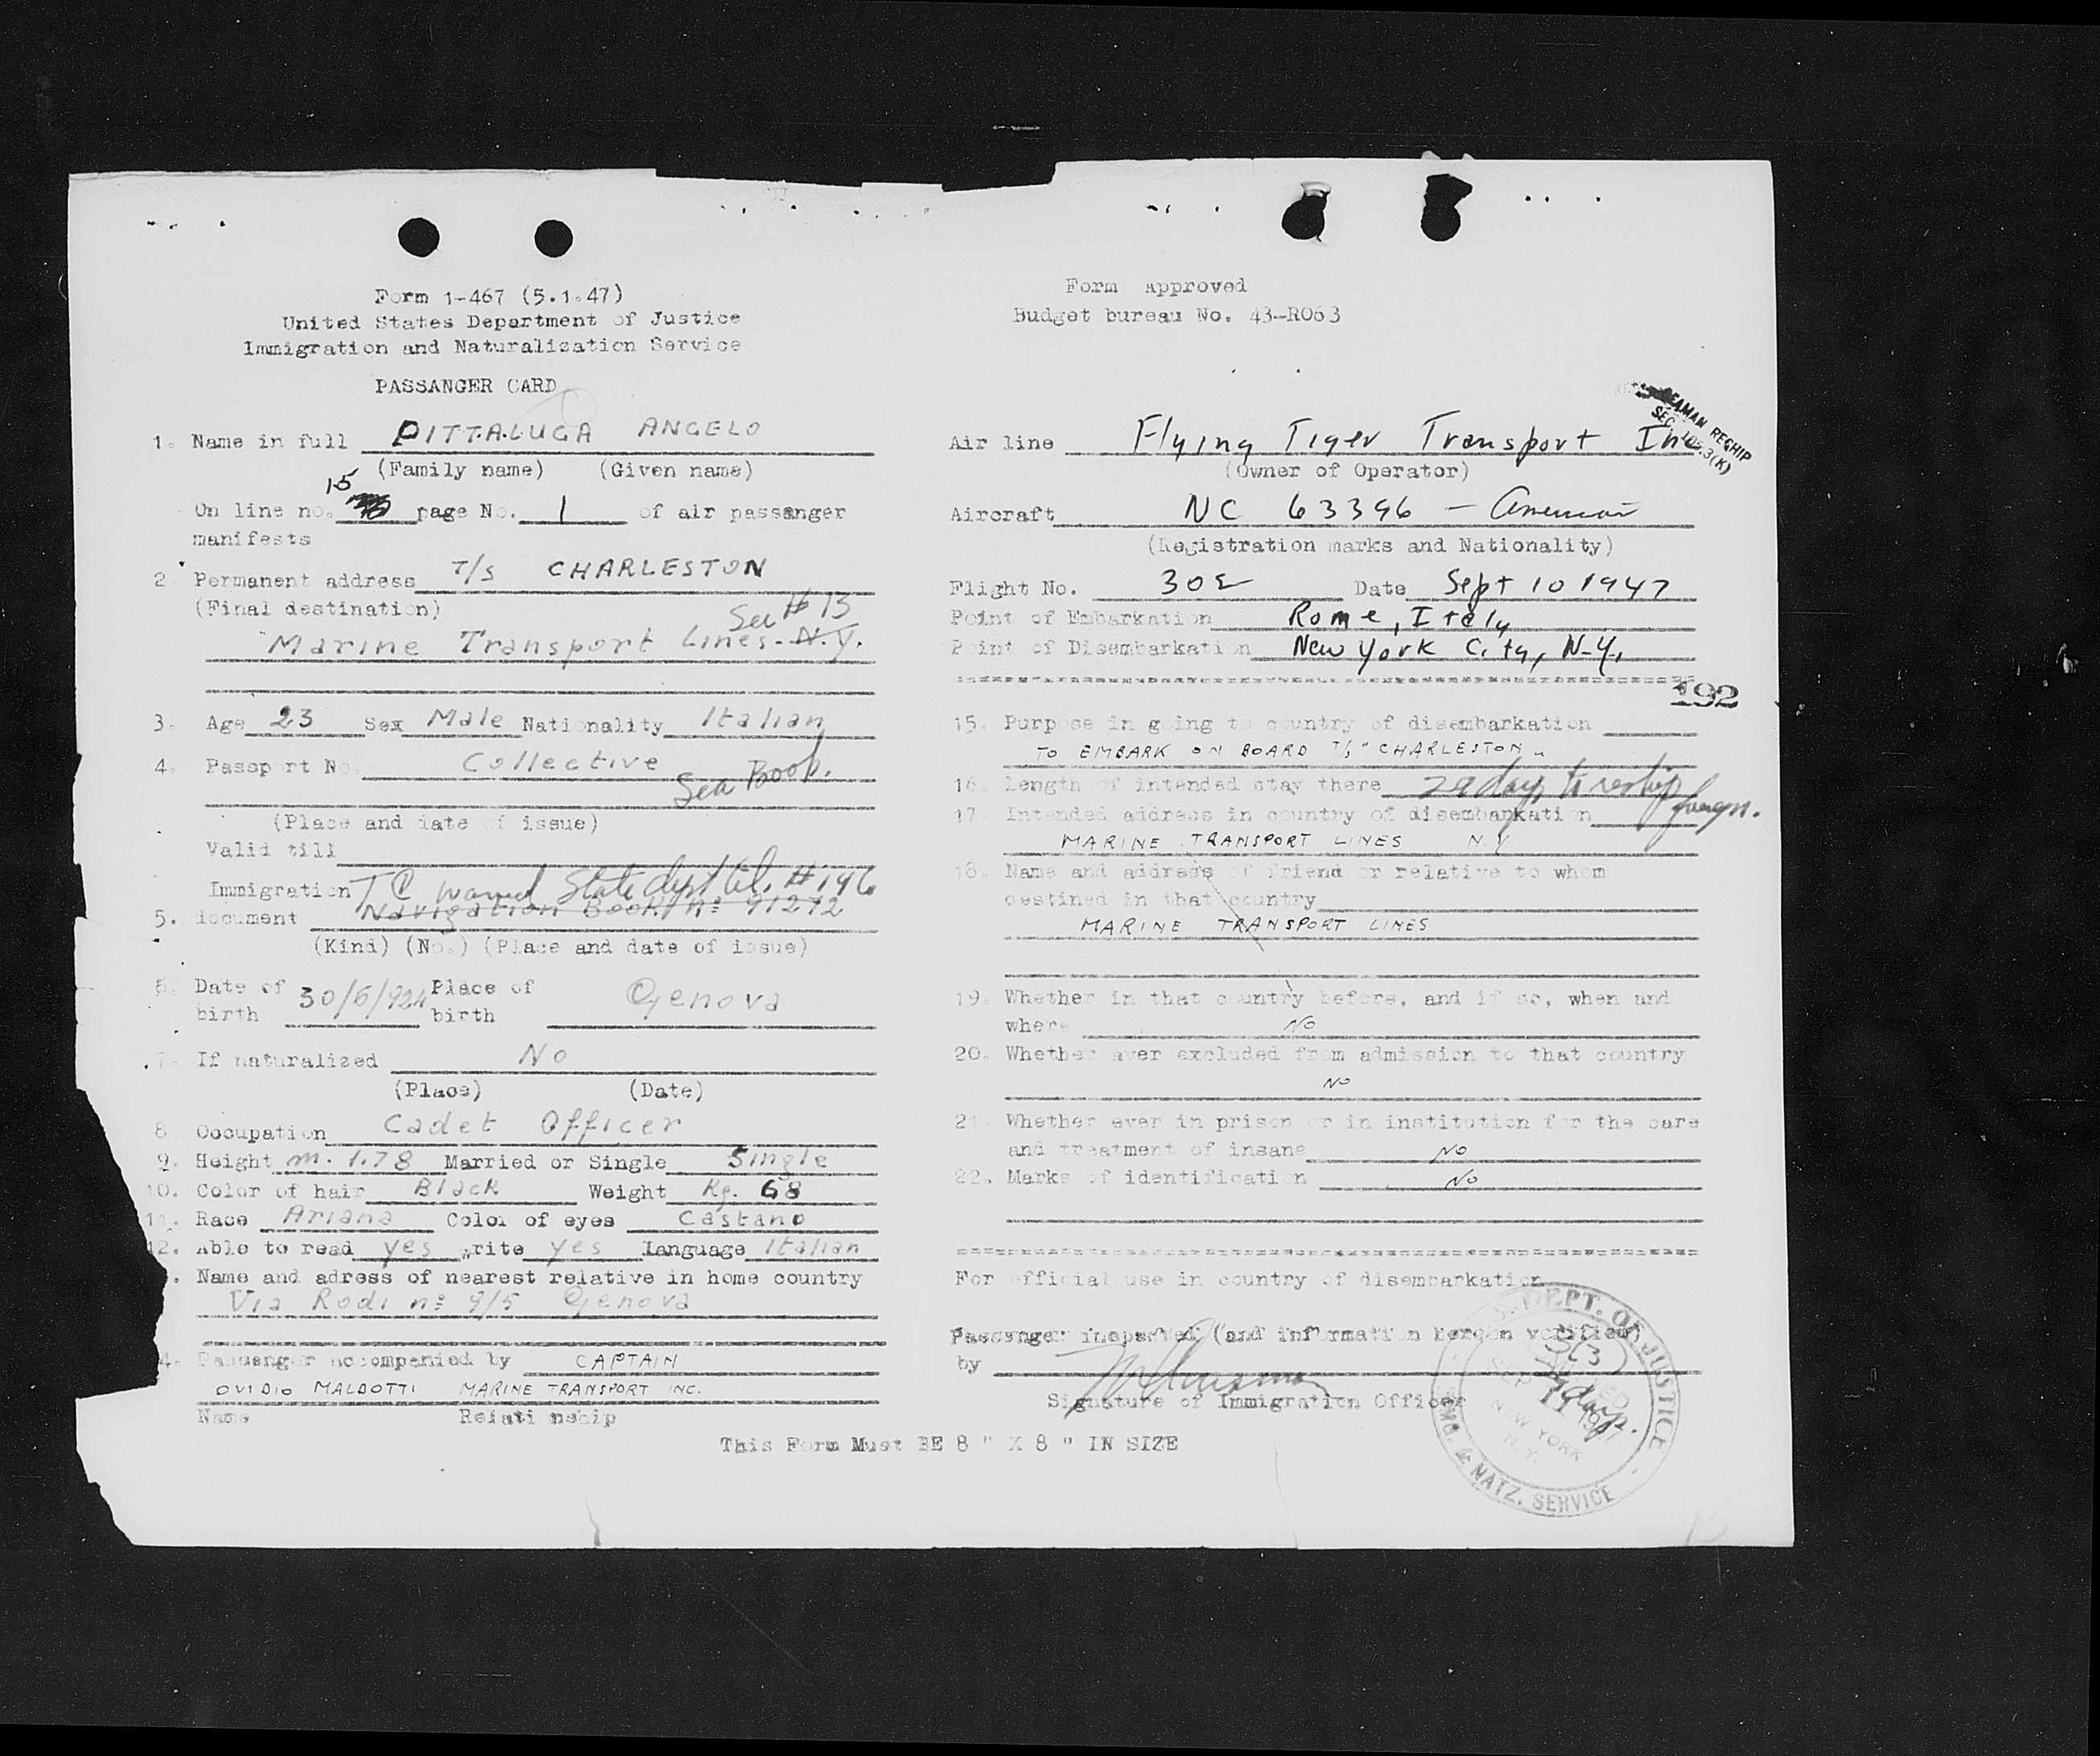 Form 1-467 (5.1.47)
United States Department of Justice
Immigration and Naturalization Service
PASSANGER CARD
1. Name in full PITTALUGA ANGELO
(Family name) (Given name)
15
On line no. page No. 1 of air passanger
manifests
2. Permanent address T/S CHARLESTON
(Final destination) See #13
Marine Transport Lines - N.Y.
3. Age 23 Sex Male Nationality Italian
4. Passport No. Collective Sea Book.
(Place and date of issue)
Valid till
Immigration waived State dept #196
5. document Navigation Book nº 91272
(Kind) (No.) (Place and date of issue)
6. Date of 30/6/924 Place of Genova
birth birth
7. If naturalized No
(Place) (Date)
8. Occupation Cadet Officer
9. Height m. 1.78 Married or Single Single
10. Color of hair Black Weight Kg. 68
11. Race Ariana Color of eyes Castano
12. Able to read yes write yes language Italian
. Name and adress of nearest relative in home country
Via Rodi nº 9/5 Genova
4. Passenger accompanied by CAPTAIN
OVIDIO MALDOTTI MARINE TRANSPORT INC.
Name Relationship
This Form Must BE 8 " X 8 " IN SIZE
Form Approved
Budget bureau No. 43-R063
SEAMAN RESHIP
SEC. 3(K)
Air line Flying Tiger Transport Inc
(Owner of Operator)
Aircraft NC 63396 - American
(Registration marks and Nationality)
Flight No. 302 Date Sept 10 1947
Point of Embarkation Rome, Italy
Point of Disembarkation New York City, N.Y.
192
15. Purpose in going to country of disembarkation
TO EMBARK ON BOARD T/S "CHARLESTON"
16. Length of intended stay there 29 days to reship foreign.
17. Intended address in country of disembarkation
MARINE TRANSPORT LINES N.Y
18. Name and address of friend or relative to whom
destined in that country
MARINE TRANSPORT LINES
19. Whether in that country before, and if so, when and
where No
20. Whether aver excluded from admission to that country
No
21. Whether ever in prison or in institution for the care
and treatment of insane No
22. Marks of identification No
For official use in country of disembarkation
Passenger inspected (and information hereon verified)
by
Signature of Immigration Officer
U.S. DEPT. OF JUSTICE
3(3)
ADMITTED
SEP 11 1947
29 days.
NEW YORK
N.Y.
IMMG. & NATZ. SERVICE
15